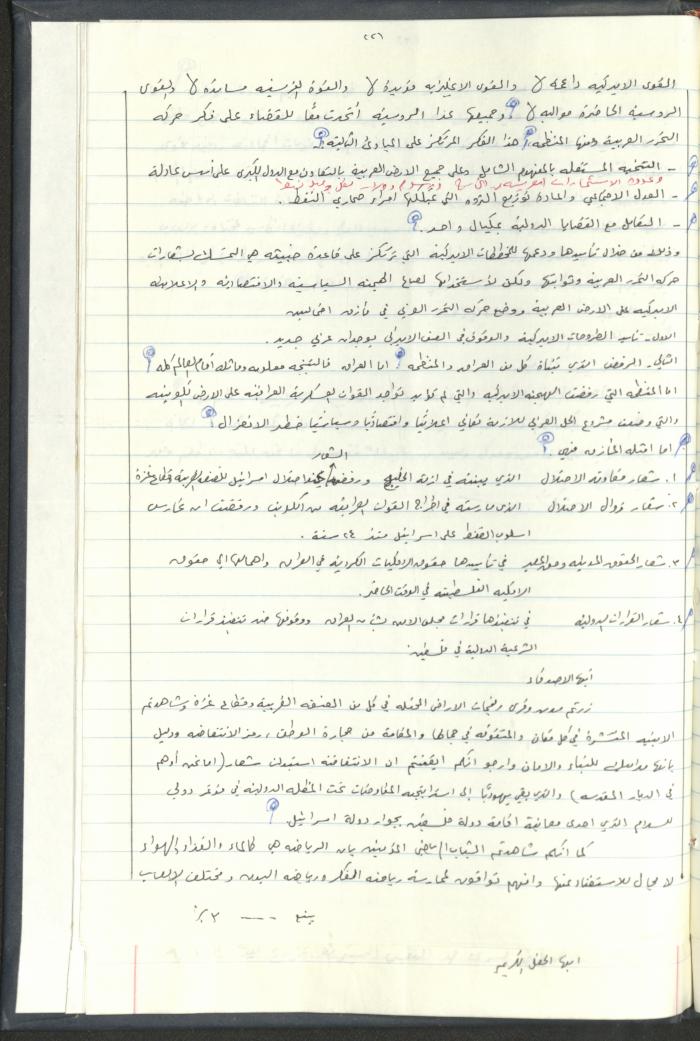 ٢٢٦
القوى الامريكيه داعمه لا والقوى الانغليزيه مؤيدة لا والقوة الفرنسيه مسانده لا والقوى
الروسية الحاضرة مواليه لا وجميعها عدا الروسية اتحدت معًا للقضاء على فكر حركه
التحرر العربية ومنها المنظمه هذا الفكر المرتكز على المبادئ التاليه
- التنميه المستقله بالمفهوم الشامل وعلى جميع الارض العربية بالتعاون مع الدول الكبرى على اسس عادلة
- العدل الاجتماعي والمادي لتوزيع الثروه التي يمتلكها امراء صحاري النفط.
- التعامل مع القضايا الدولية بمكيال واحد.
وذلك من خلال تأسيسها ودعمها للمخططات الامريكية التي ترتكز على قاعدة هي التمسك بشعارات
حركه التحرر العربية وثوابتها ولكن لاستخدامها لصالح الهيمنه السياسية والاقتصادية والاعلامية
الامريكيه على الارض العربية ووضع حركه التحرر العربي في مأزق
الاول - تأييد الطروحات الامريكية والوقوف في الصف الامريكي بوجدان عربي جديد.
الثاني - الرفض الذي تبناه كل من العراق والمنظمه اما العراق فالنتيجه معلومه وماثله أمام العالم كله
اما المنظمه التي رفضت الهجمه الامريكيه والتي لم تؤيد تواجد القوات العسكرية العراقية على الارض الكويتيه
والتي وضعت مشروع الحل العربي للازمة تعاني اعلاميًا واقتصاديًا وسياسيًا خطر الانعزال
اما امثله المأزق فهي
الشعار
١. شعار مقاومة الاحتلال الذي تبنته في ازمة الخليج ورفضه احتلال اسرائيل للضفه الغربية وقطاع غزة
٢. شعار زوال الاحتلال الذي مارسته في اخراج القوات العراقيه من الكويت ورفضت ان تمارس
اسلوب الضغط على اسرائيل منذ ٢٤ سنة.
٣. شعار الحقوق المدنيه وحق المصير في تأييدها حقوق الاقليات الكرديه في العراق واهمالها الى حقوق
الاكثريه الفلسطينيه في الوقت الحاضر.
٤. شعار القرارات الدوليه في تنفيذها قرارات مجلس الامن بشأن العراق ووقوفها ضد تنفيذ قرارات
الشرعية الدولية في فلسطين.
أيها الاصدقاء
زرتم مدن وقرى ومخيمات الاراضي المحتله في كل من الضفه الغربية وقطاع غزة وشاهدتم
الابنيه المنتشرة في كل مكان والمتفوقه في جمالها والمقامة من حجارة الوطن، رمز الانتفاضه ودليل
بانها للبناء والامان وارجو انكم ايقنتم ان الانتفاضه استبدلت شعار (اما نحن أو هم
في الديار المقدسه) والذي بقي يهوديًا إلى استراتيجيه المفاوضات تحت المظله الدولية في مؤتمر دولي
للسلام الذي احدى معانيه اقامة دولة فلسطين بجوار دولة اسرائيل.
كما أنكم شاهدتم الشباب المؤمنين بان الرياضه هي كالماء والغذاء والهواء
لا مجال للاستغناء عنها وانهم تواقون لممارسة رياضه الفكر ورياضه البدن ومختلف الالعاب
يتبع --- ٣
ايها الحفل الكريم